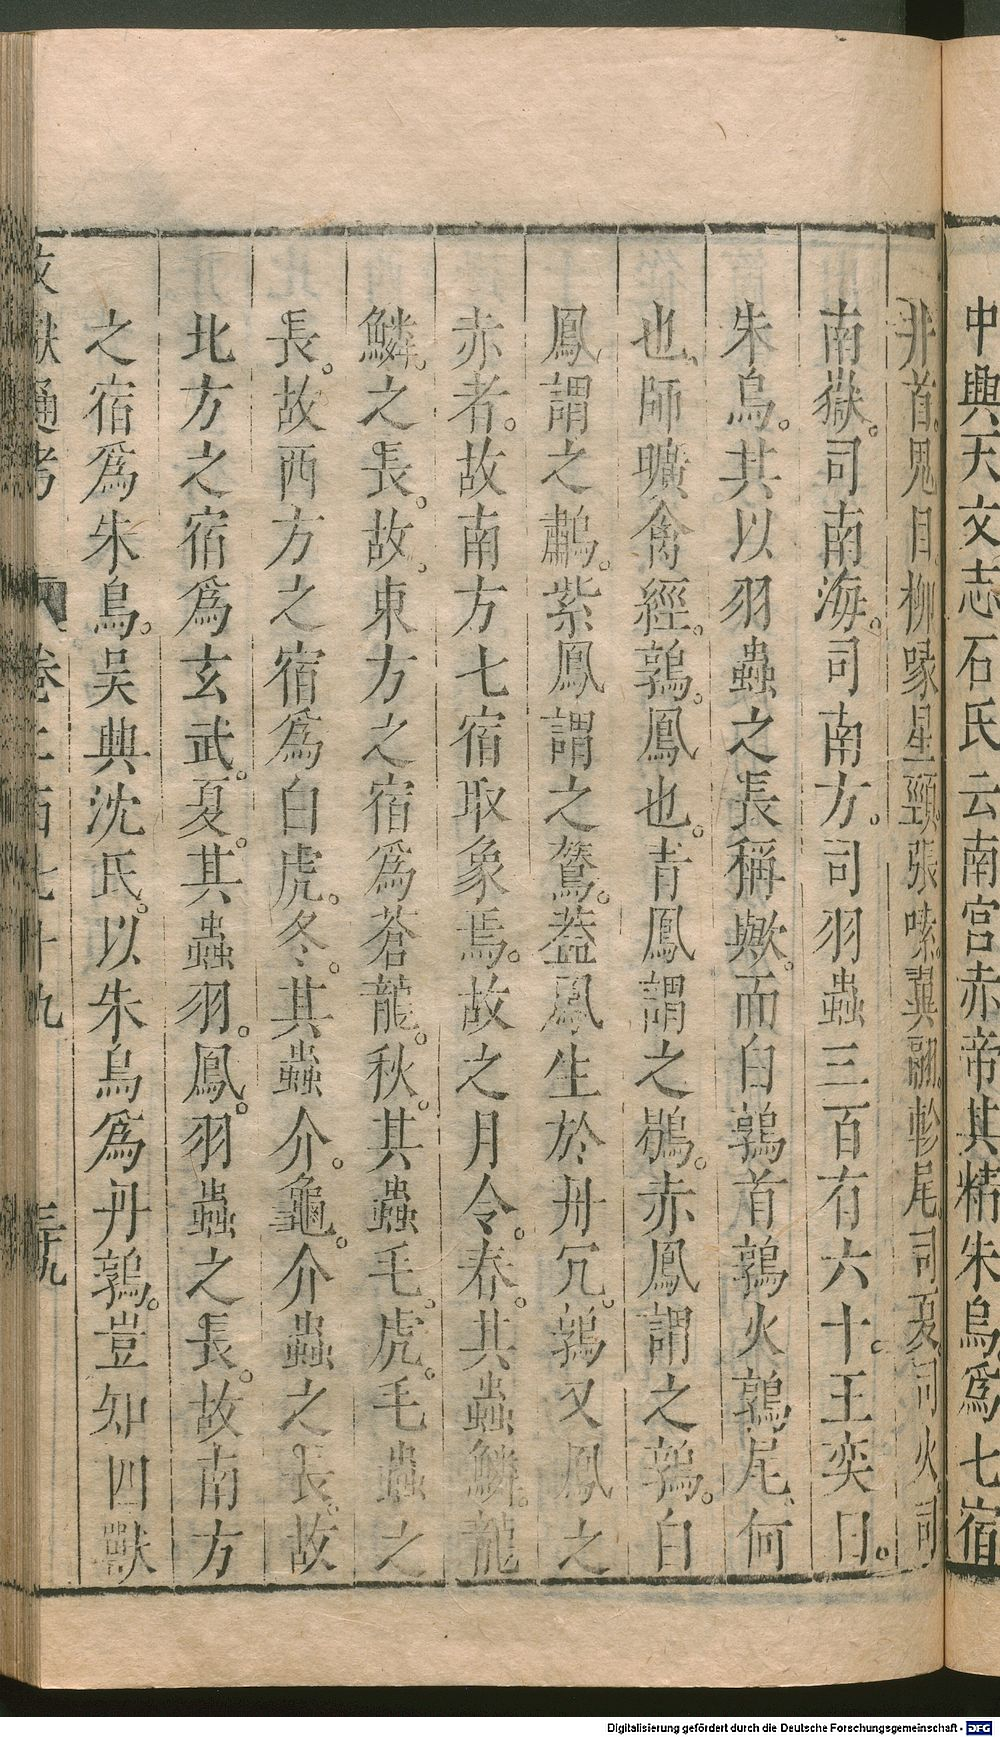 中興天文志石氏云南宮赤帝其精朱鳥爲七宿
井首鬼目柳喙星頸張嗉翼翮軫尾司夏司火司
南嶽。司南海。司南方。司羽蟲三百有六十。王奕曰。
朱鳥。其以羽蟲之長稱歟。而曰鶉首鶉火鶉尾、何
也、師曠禽經。鶉。鳳也。青鳳謂之鶡。赤鳳謂之鶉。白
鳳謂之鷫。紫鳳謂之鷟。蓋鳳生於丹穴。鶉又鳳之
赤者。故南方七宿取象焉。故之月令。春。其蟲鱗。龍
鱗。之長。故東方之宿爲蒼龍。秋。其蟲毛。虎。毛蟲之
長。故西方之宿爲白虎。冬。其蟲介。龜。介蟲之長。故
北方之宿爲玄武。夏。其蟲羽。鳳。羽蟲之長。故南方
之宿爲朱鳥。吴興沈氏。以朱鳥爲丹鶉。豈知四獸
文獻通考 卷二百七十九 三十九
Digitalisierung gefördert durch die Deutsche Forschungsgemeinschaft - DFG